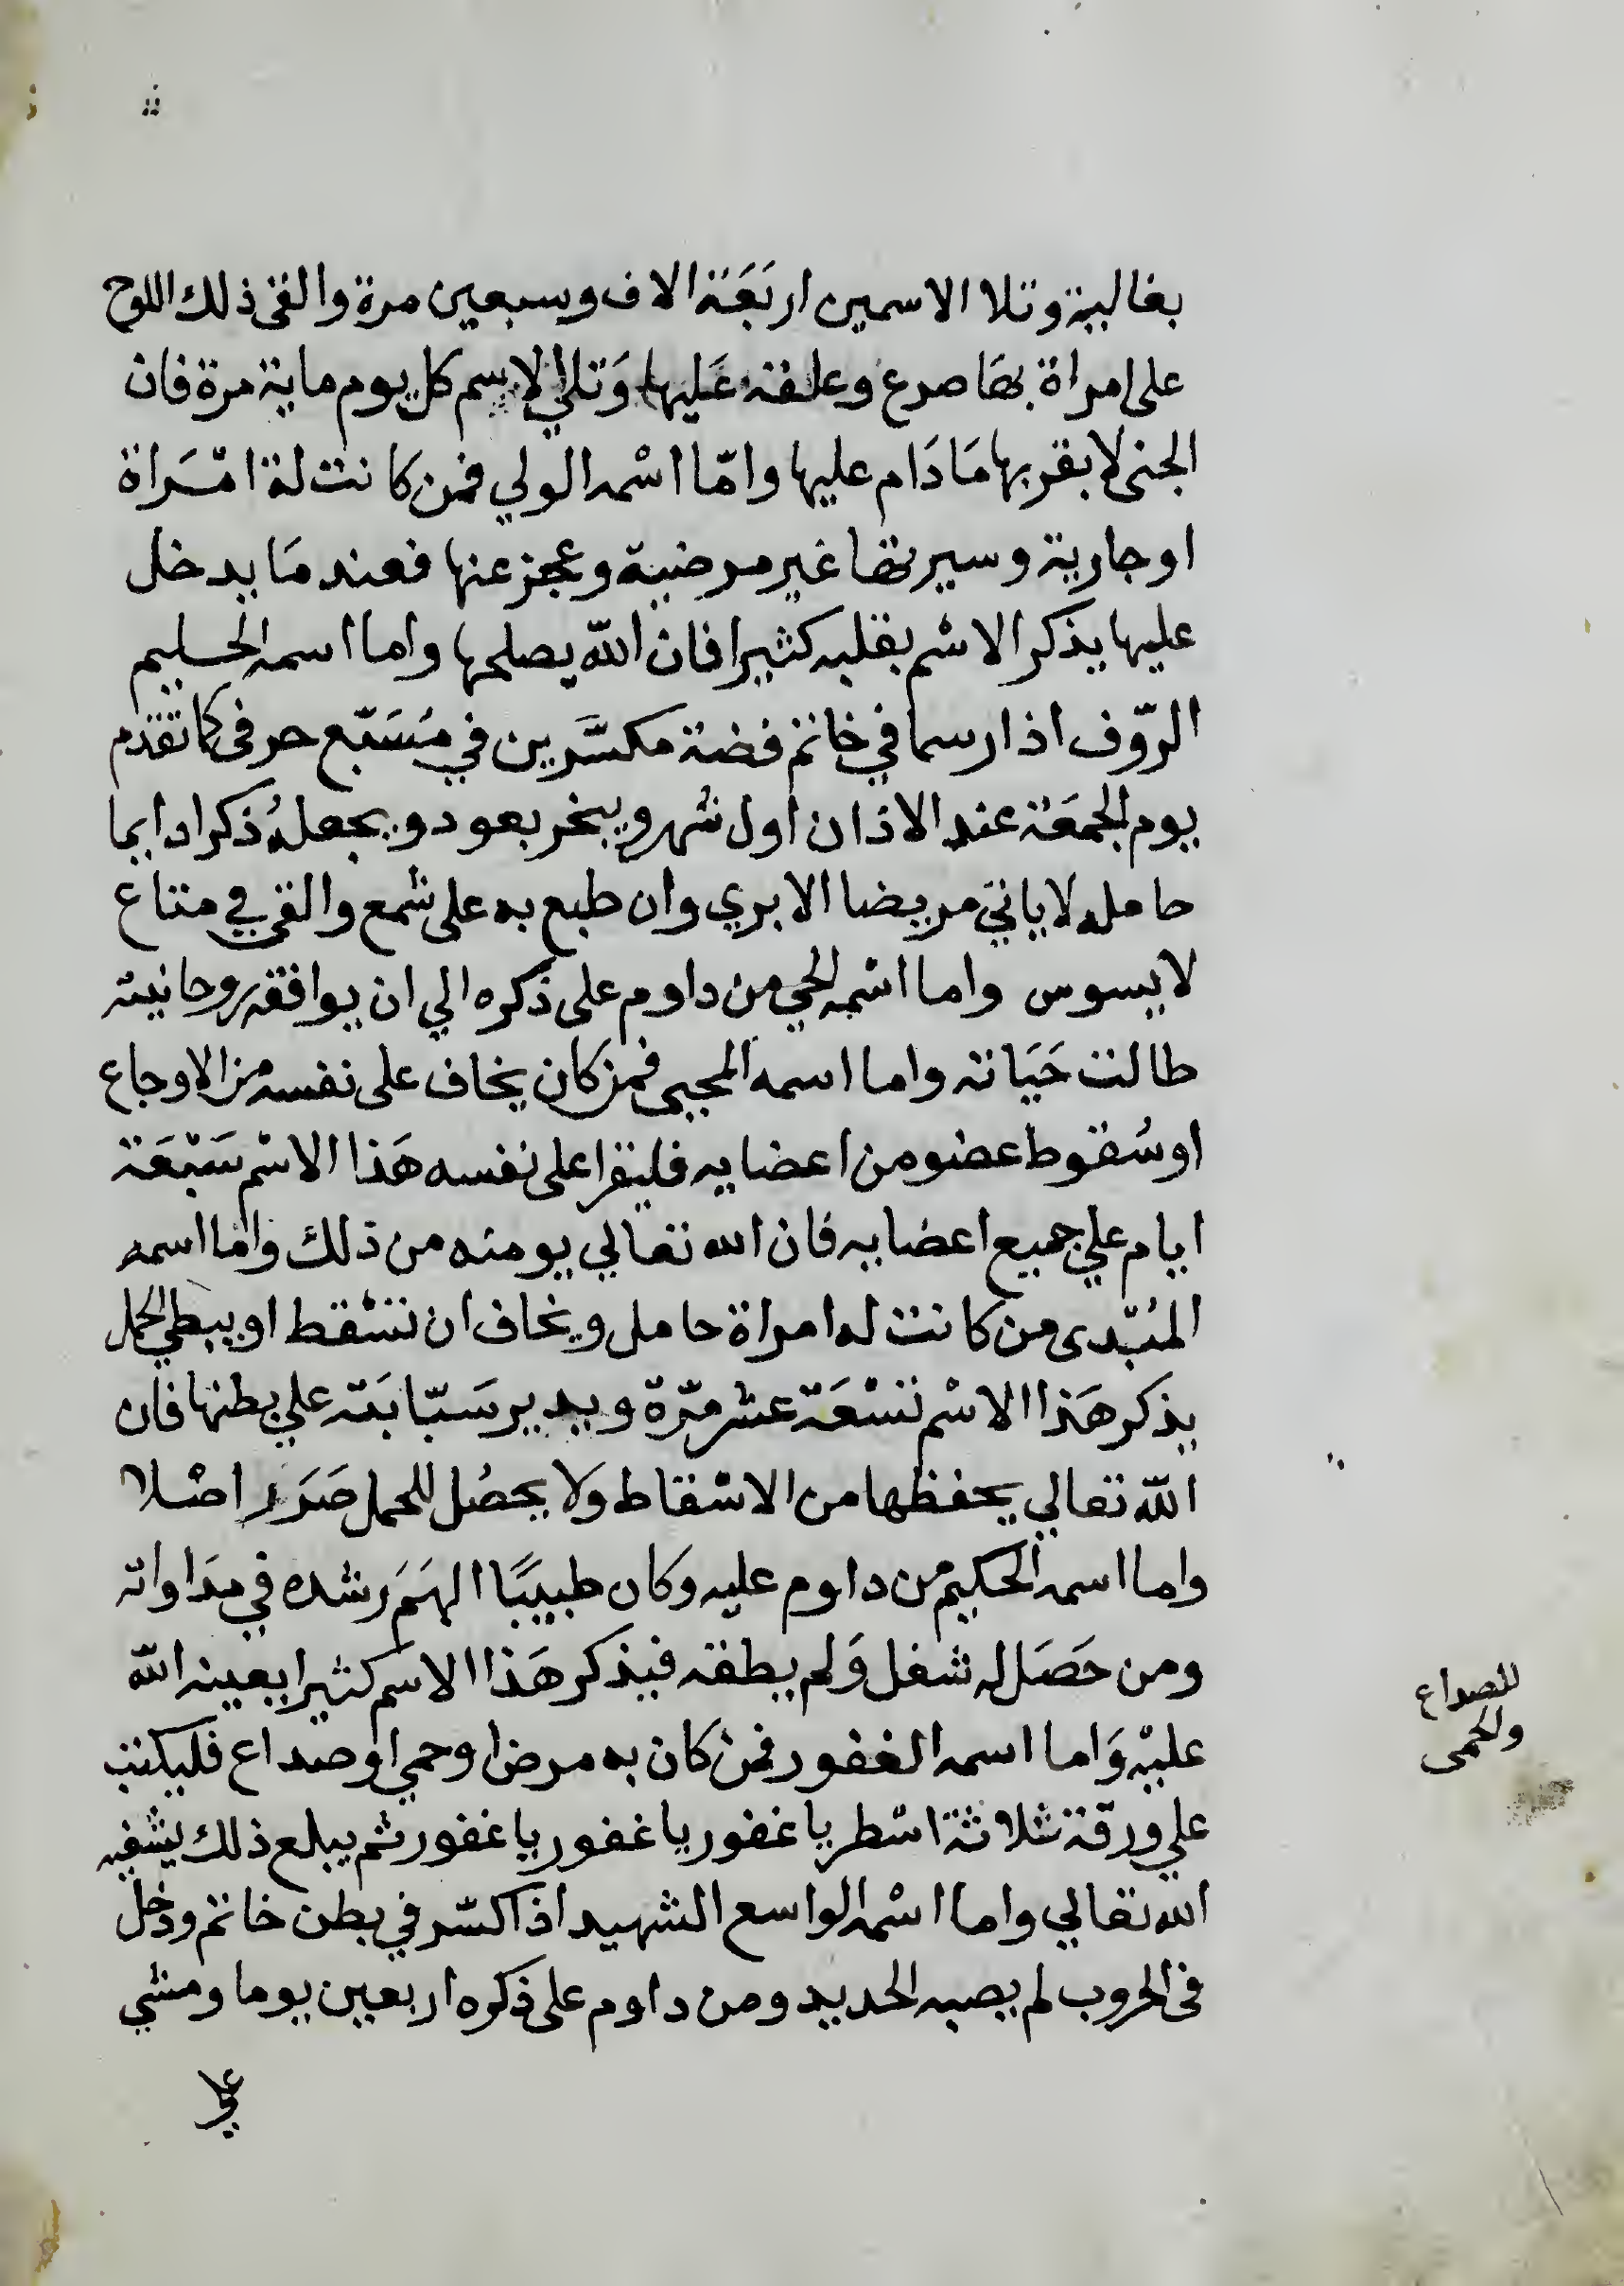 بغالية وتلا الاسمين اربَعَة الاف وسبعين مرة والقى ذلك اللوح
على امراة بهَا صرع وعلقه عَليها وَتلي الاسم كل يوم ماية مرة فان
الجنى لا يقربها مَا دَام عليها وامّا اسْمه الولي فمن كانت لة امْرَاة
او جارية وسيرتها غير مرضية وعجز عنها فعند مَا يدخل
عليها يذكر الاسْم بقلبه كثيرا فان اللّه يصلحها واما اسمه الحليم
الرّوف اذا رسما في خاتم فضة مكسَّرين في مُسَبّع حرفى كما تقدم
يوم الجمعَة عند الاذان اول شهر ويبخر بعود ويجعلهُ ذكرا دايما
حامله لا ياتي مريضا الا بري وان طبع به على شمع والقي في متاع
لا يسوس واما اسْمه الحي من داوم على ذكره الي ان يوافقه روحانيته
طالت حَيَاته واما اسمه المحيى فمن كان يخاف على نفسه من الاوجاع
او سُقوط عضو من اعضايه فليقرا على نفسه هَذا الاسْم سَبْعَة
ايام علي جميع اعضايه فان الله تعالي يومنه من ذلك واما اسمه
المُبْدى من كانت له امراة حامل ويخاف ان تسْقط او يبطي الحمل
يذكر هَذا الاسْم تسْعَة عشر مرّة ويدير سَبّابَته علي بطنها فان
اللّه تعالي يحفظها من الاسْقاط وَلا يحصُل للحمل ضَرَر اصْلا
واما اسمه الحكيم من داوم عليه وكان طبيبًا الهَمَ رشده في مدَاواته
ومن حَصَل له شغل وَلم يطقه فيذكر هَذا الاسم كثيرا يعينه اللّه
عليْه وَاما اسمه الغفور فمن كان به مرض او حمي او صداع فليكتب
علي ورقة ثلاثة اسْطر يا غفور يا غفور يا غفور ثم يبلع ذلك يشفيه
الله تعالي واما اسْمه الواسع الشهيد اذا كسّر في بطن خاتم ودخل
فى الحروب لم يصبه الحديد ومن داوم على ذكره اربعين يوما ومشي
علي
للصداع
ولحمى